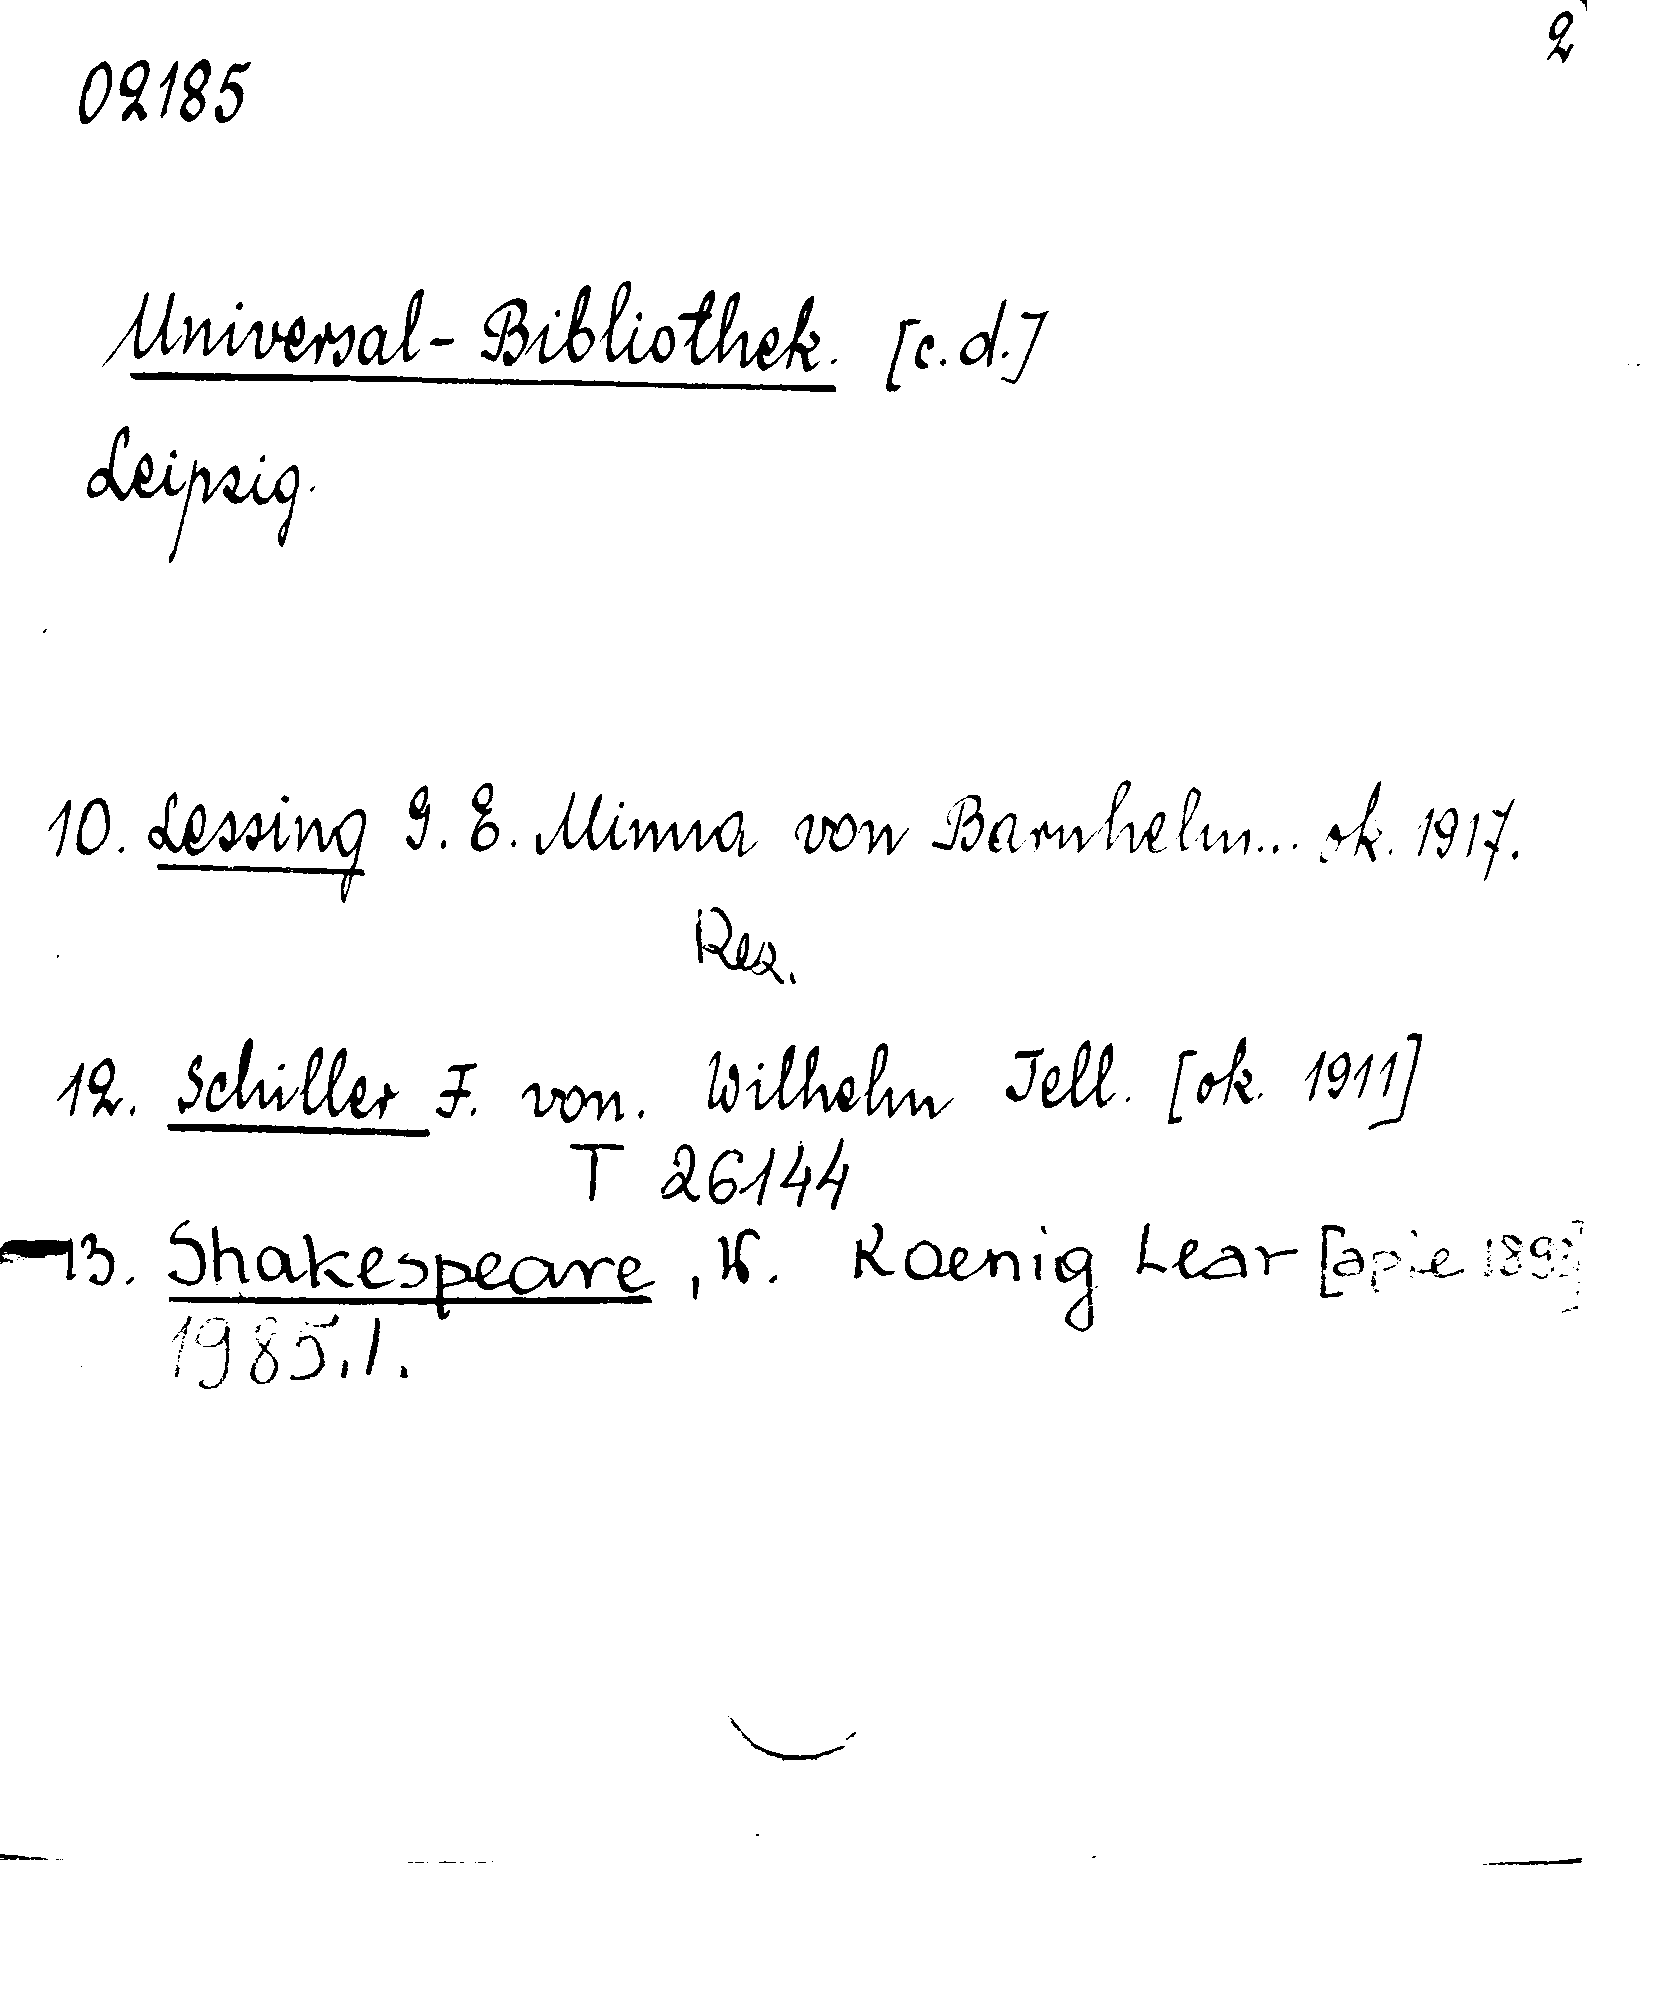 2
02185
Universal-Bibliothek. [c.d.]
Leipzig.
10. Lessing G. E. Minna von Barnhelm... ok. 1917.
Rez.
12. Schiller F. von. Wilhelm Tell. [ok. 1911]
T 26144
13. Shakespeare, W. Koenig Lear [apie
1985.1.